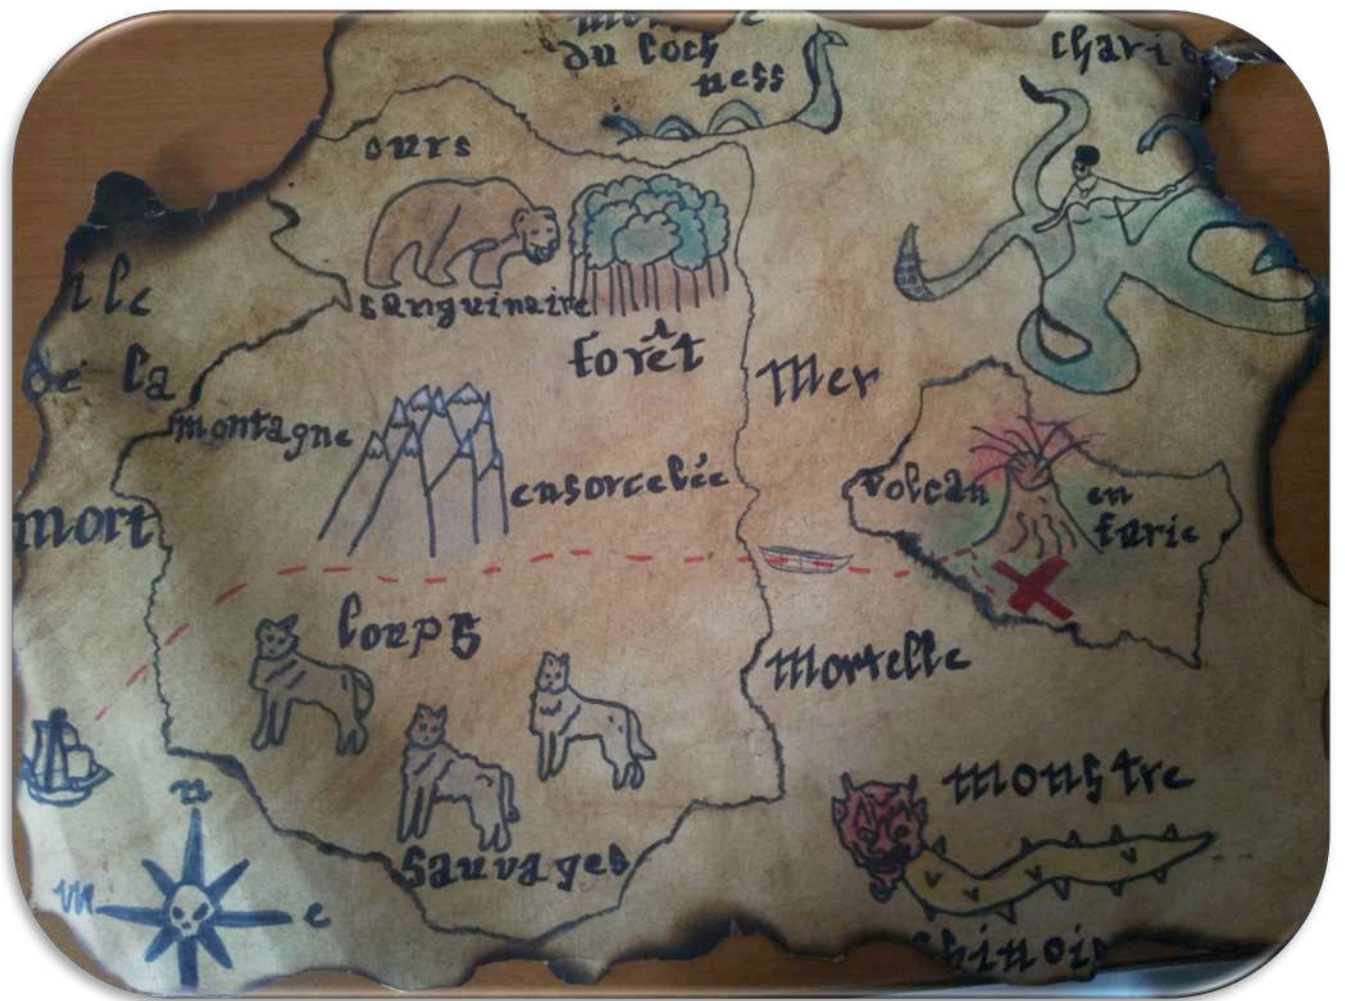 du Loch
ness
ours
sanguinaire
forêt
ile
de la
mort
montagne
ensorcelée
Mer
volcan en
furie
Loups
Mortelle
sauvages
monstre
chinois
n
w
e